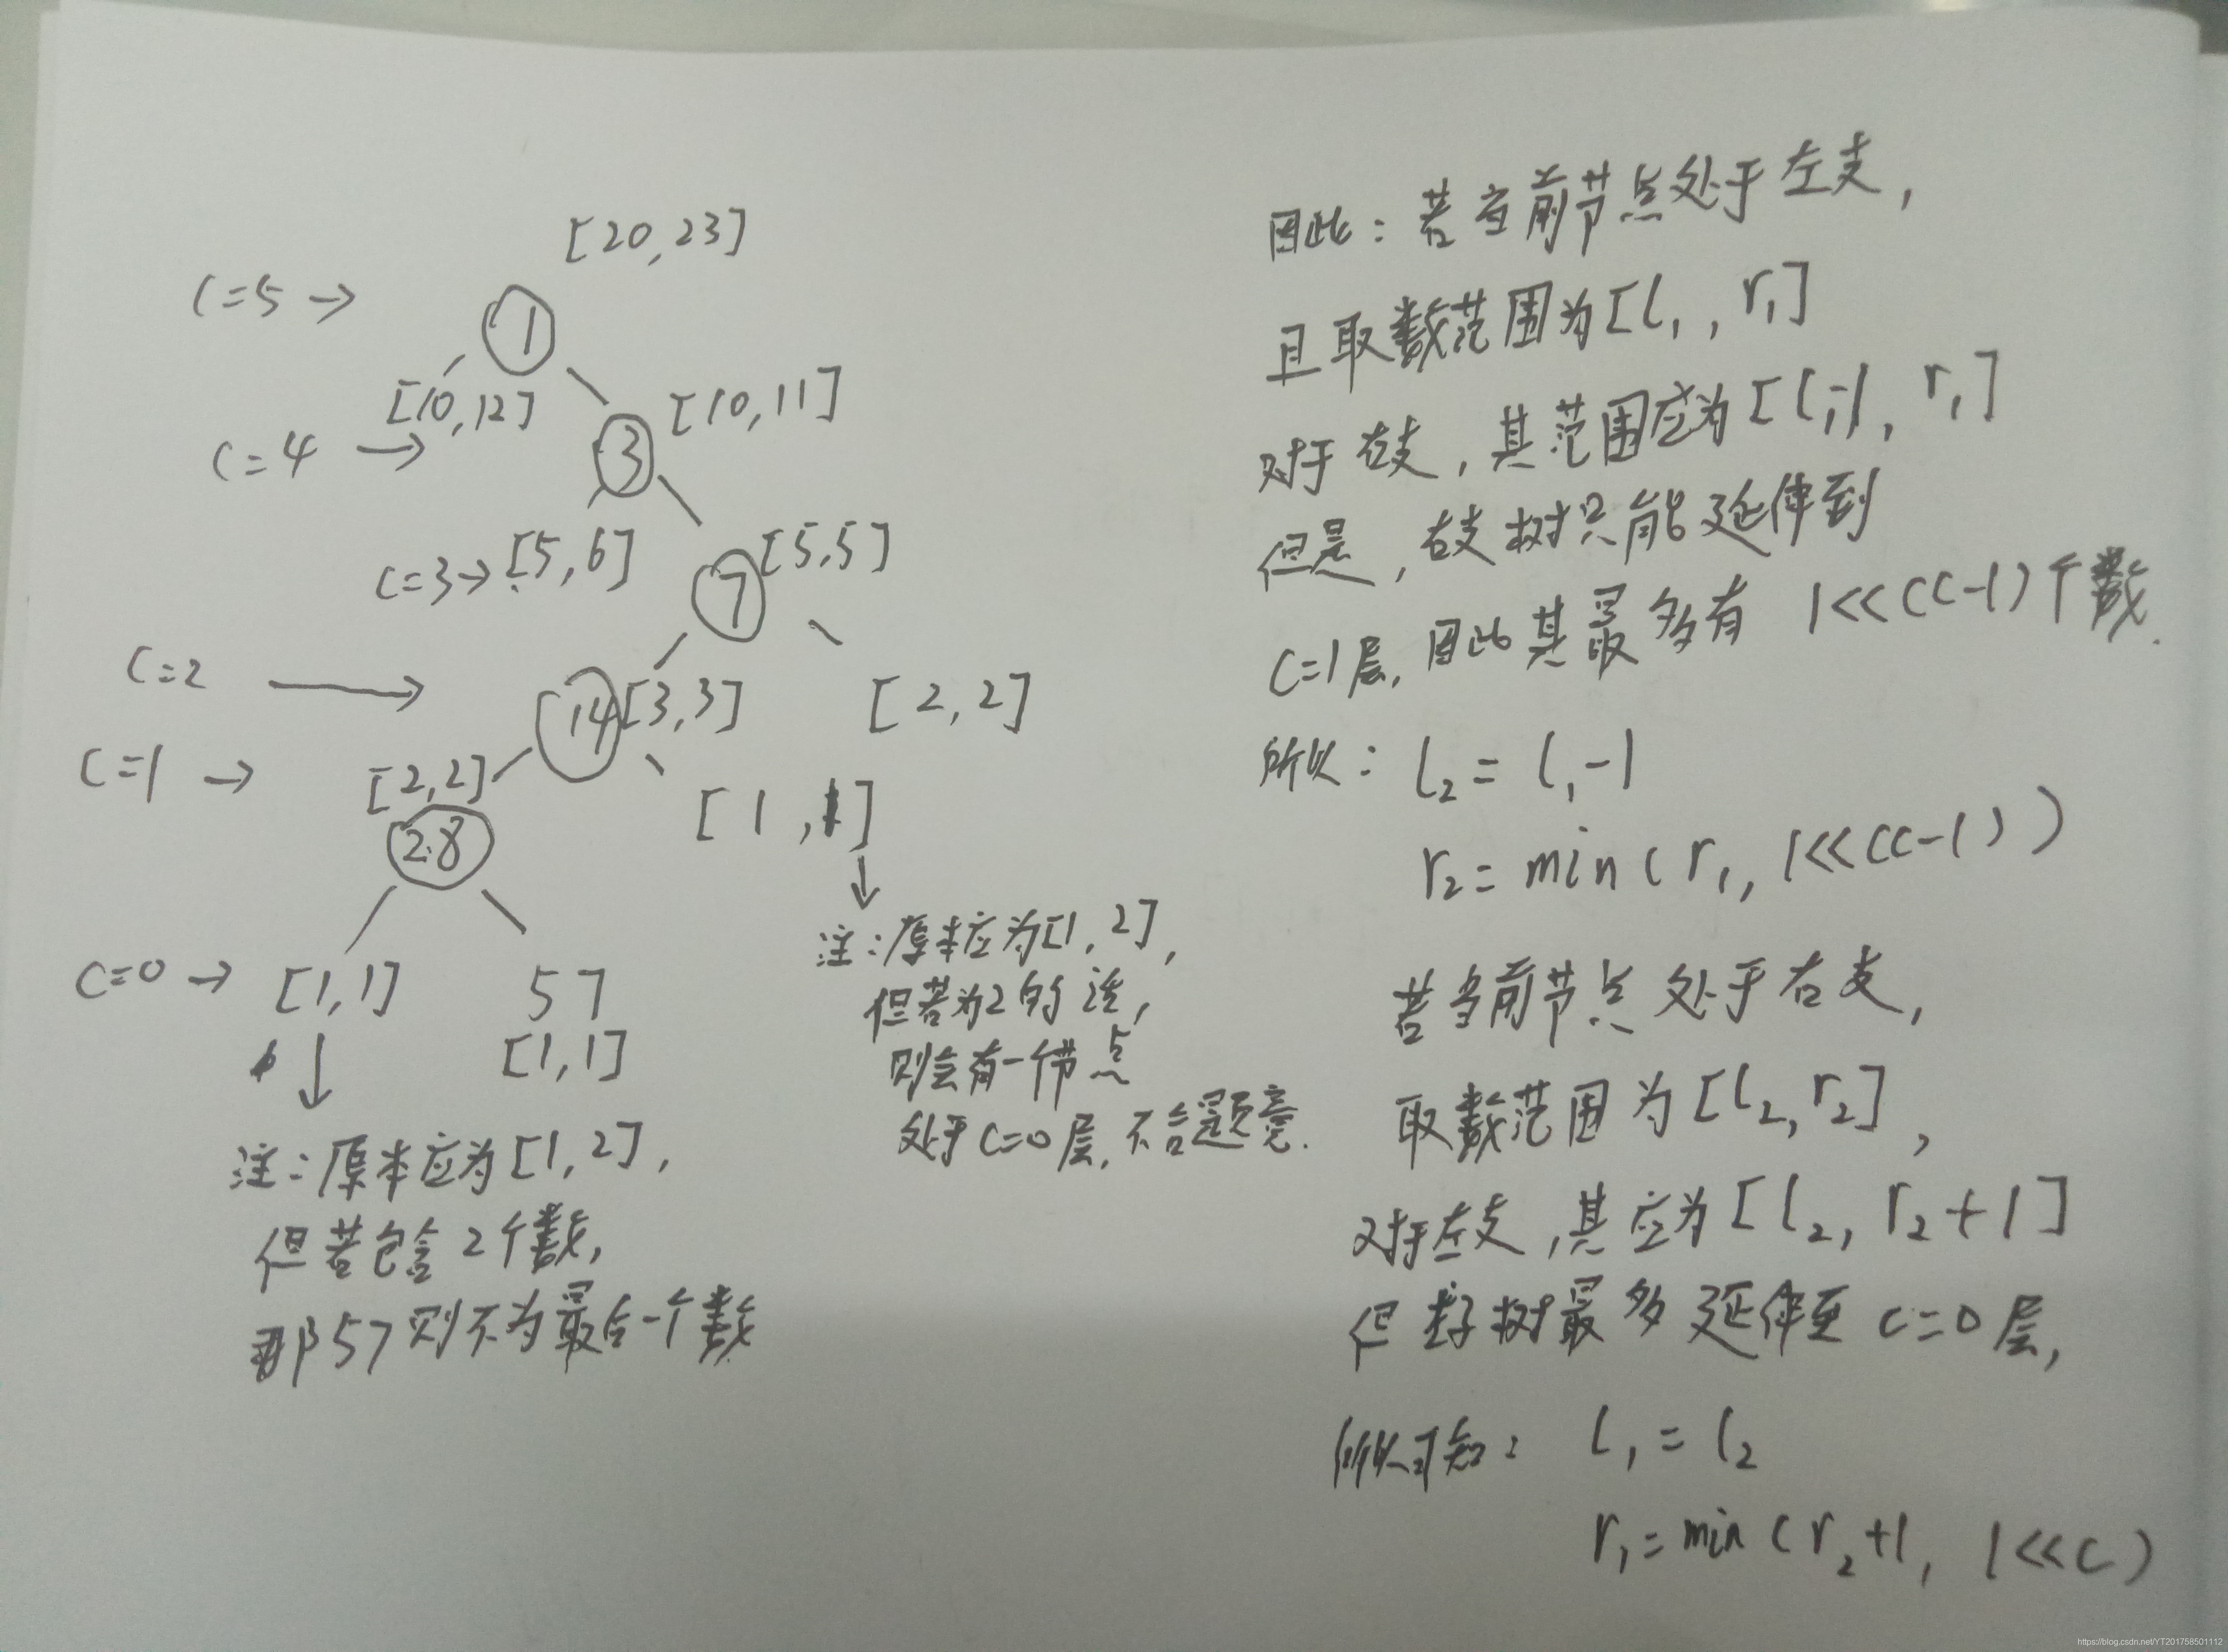 [20,23]
C=5 →
1
[10,12]
[10,11]
C=4 →
3
C=3→ [5,6]
[5,5]
7
C=2 →
14
[3,3]
[2,2]
C=1 →
[2,2]
28
[1,1]
注:原本应为[1,2],
但若为2的话,
则会有一个节点
处于C=0层,不合题意.
C=0 → [1,1]
57
[1,1]
注:原本应为[1,2],
但若包含2个数,
那57则不为最后一个数
因此:若当前节点处于左支,
且取数范围为[l₁, r₁]
对于右支,其范围应为[l₁-1, r₁]
但是,右支树只能延伸到
C=1层,因此其最多有 1<<(C-1)个数.
所以: l₂ = l₁-1
r₂ = min(r₁, 1<<(C-1))
若当前节点处于右支,
取数范围为[l₂,r₂],
对于左支,其应为[l₂, r₂+1]
但 树最多延伸至C=0层,
所以可知: l₁ = l₂
r₁ = min(r₂+1, 1<<C)
https://blog.csdn.net/YT201758501112